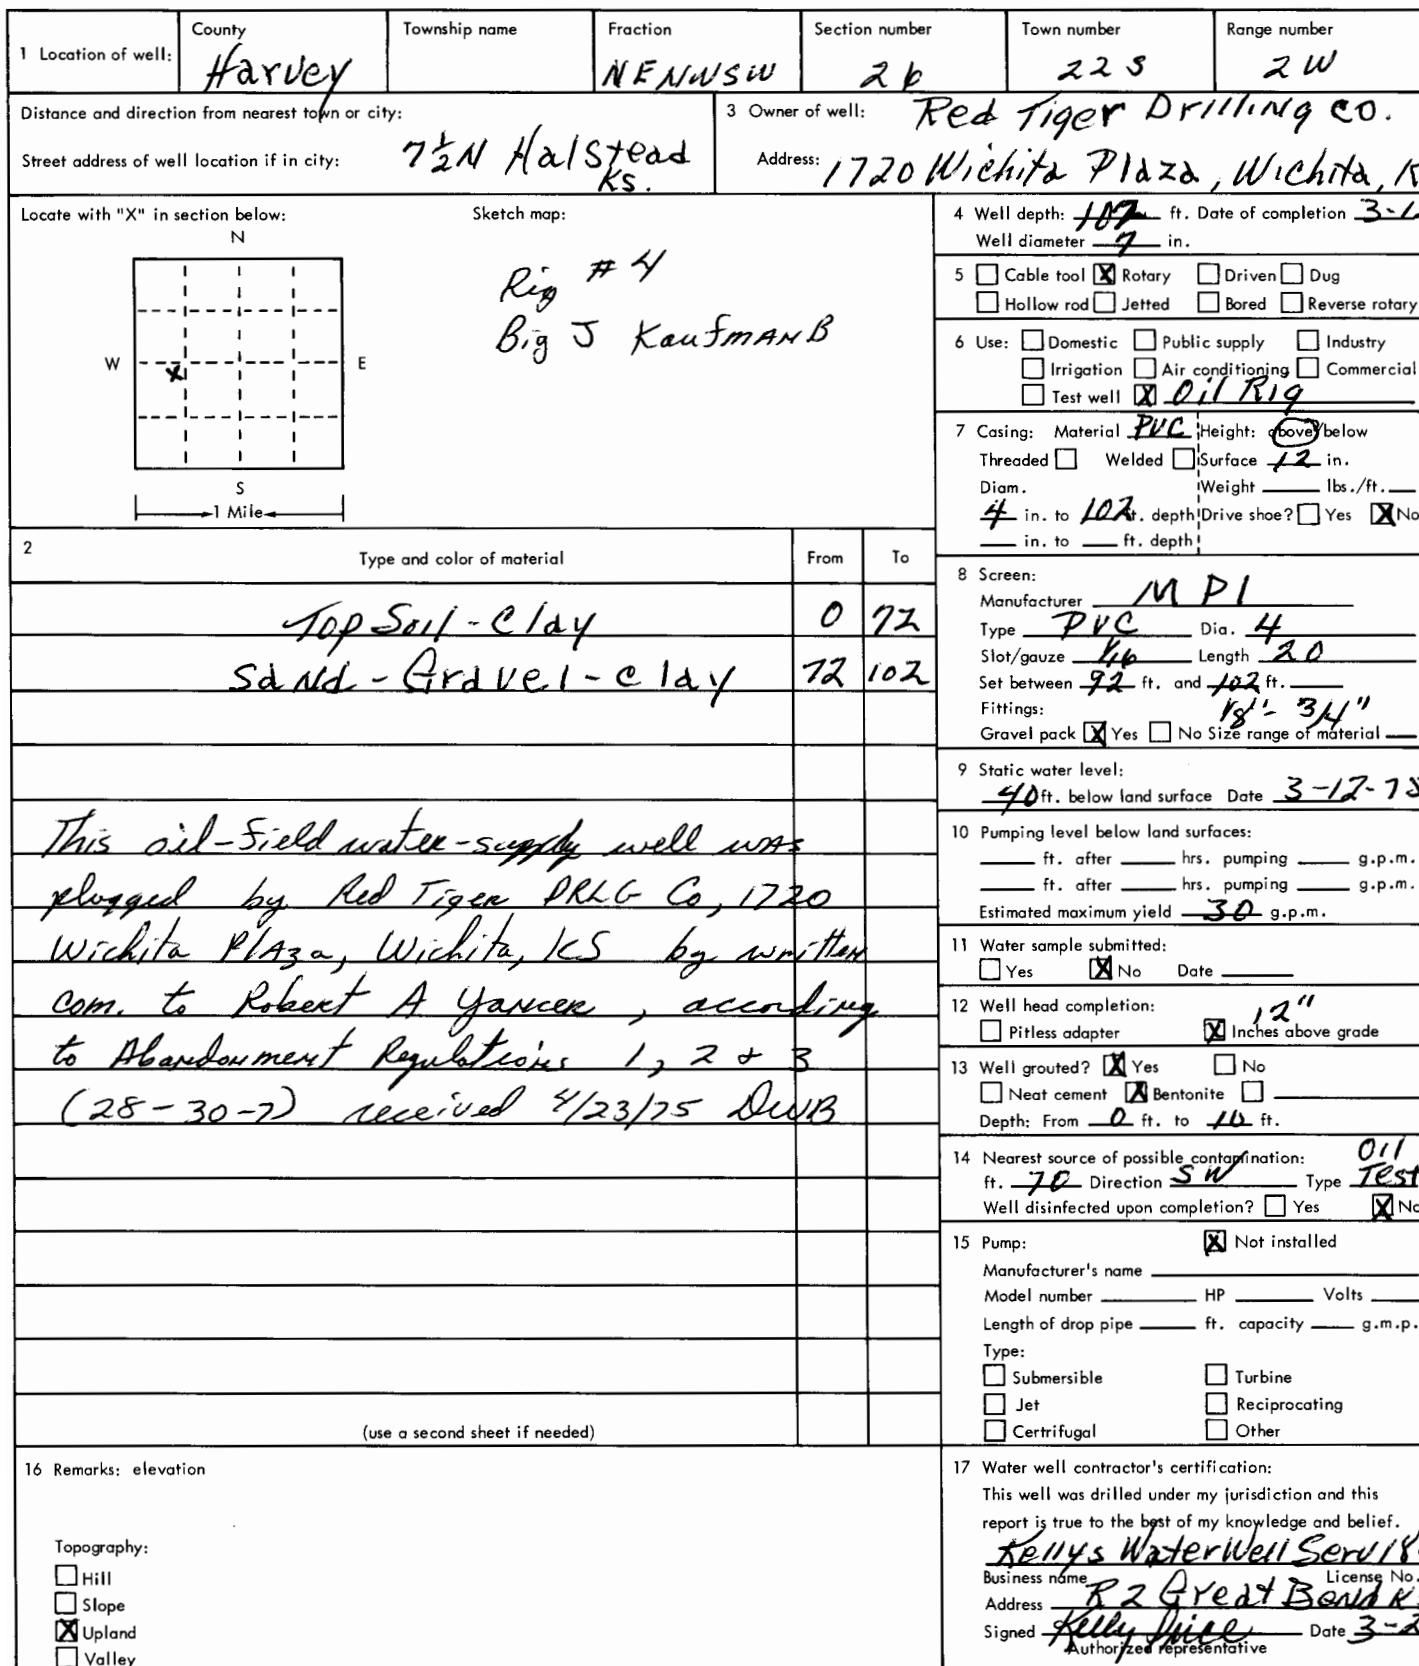 1 Location of well: County Harvey Township name Fraction NENWSW Section number 26 Town number 22S Range number 2W
Distance and direction from nearest town or city:
Street address of well location if in city: 7½N Halstead Ks.
3 Owner of well: Red Tiger Drilling co.
Address: 1720 Wichita Plaza, Wichita, K
Locate with "X" in section below:
N
W X E
S
1 Mile
Sketch map:
Rig #4
Big J Kaufman B
4 Well depth: 102 ft. Date of completion 3-1
Well diameter 7 in.
5 Cable tool X Rotary Driven Dug
Hollow rod Jetted Bored Reverse rotary
6 Use: Domestic Public supply Industry
Irrigation Air conditioning Commercial
Test well X Oil Rig
7 Casing: Material PVC Height: above/below
Threaded Welded Surface 12 in.
Diam. Weight lbs./ft.
4 in. to 102 ft. depth Drive shoe? Yes X No
in. to ft. depth
2 Type and color of material From To
Top Soil - Clay 0 72
Sand - Gravel - clay 72 102
This oil-field water-supply well was
plugged by Red Tiger DRLG Co, 1720
Wichita Plaza, Wichita, KS by written
com. to Robert A , according
to Abandonment Regulations 1, 2 & 3
(28-30-7) received 4/23/75 DWB
(use a second sheet if needed)
8 Screen:
Manufacturer MPI
Type PVC Dia. 4
Slot/gauze 1/16 Length 20
Set between 92 ft. and 102 ft.
Fittings: 1/8"- 3/4"
Gravel pack X Yes No Size range of material
9 Static water level:
40 ft. below land surface Date 3-12-75
10 Pumping level below land surfaces:
ft. after hrs. pumping g.p.m.
ft. after hrs. pumping g.p.m.
Estimated maximum yield 30 g.p.m.
11 Water sample submitted:
Yes X No Date
12 Well head completion: 12"
Pitless adapter X Inches above grade
13 Well grouted? X Yes No
Neat cement X Bentonite
Depth: From 0 ft. to 10 ft.
14 Nearest source of possible contamination: Oil
ft. 70 Direction SW Type Test
Well disinfected upon completion? Yes X No
15 Pump: X Not installed
Manufacturer's name
Model number HP Volts
Length of drop pipe ft. capacity g.m.p.
Type:
Submersible Turbine
Jet Reciprocating
Certrifugal Other
16 Remarks: elevation
Topography:
Hill
Slope
X Upland
Valley
17 Water well contractor's certification:
This well was drilled under my jurisdiction and this
report is true to the best of my knowledge and belief.
Kellys Water Well Serv 18
Business name License No.
Address R2 Great Bend K
Signed Kelly Date 3-2
Authorized representative